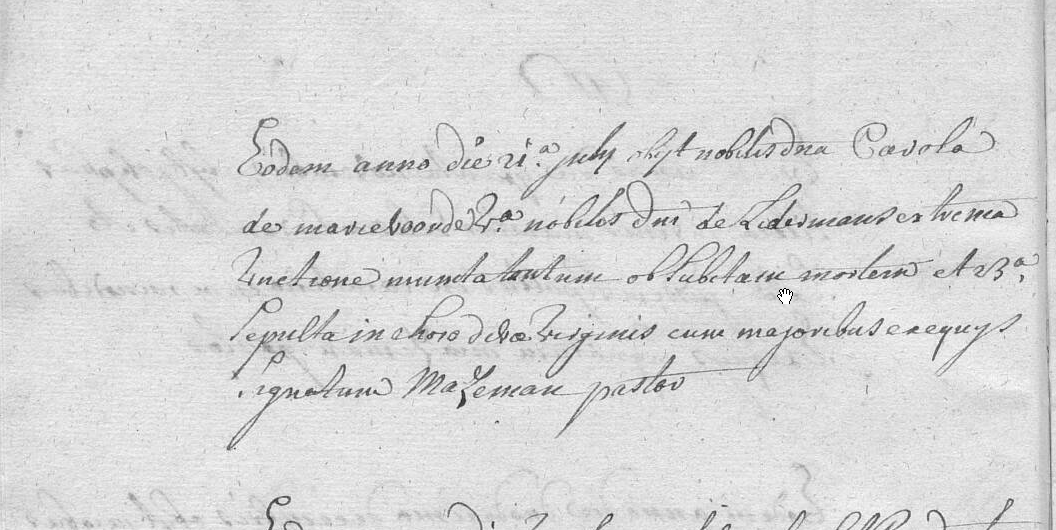 Eodem anno die 21.a july obyt nobilis dna Carola
de marievoorde V.a nobilis Dni de Lidermans extrema
Unctione munita tantum ob subitam mortem et 23.a
Sepulta in choro divæ Virginis cum majoribus exequys
Signatum Mazeman pastor